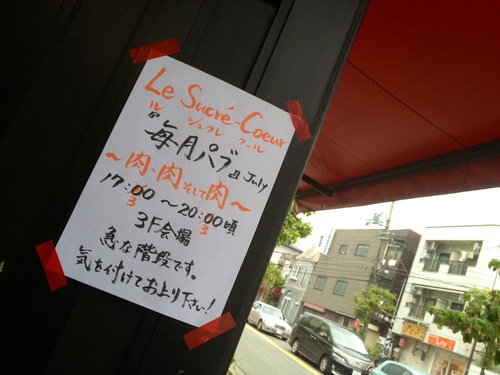 Le Sucré-Coeur
ル シュクレ クール
毎月パブ @ July
〜肉・肉そして肉〜
17:00 〜 20:00頃
3F会場
急な階段です。
気を付けてお上り下さい!